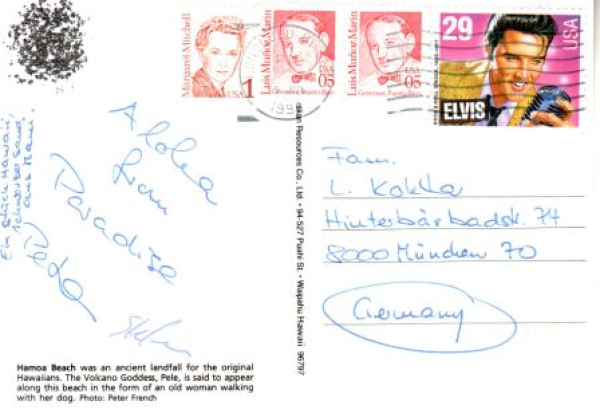 Margaret Mitchell
USA 1
Luis Muñoz Marin
Governor, Puerto Rico
USA 05
Luis Muñoz Marin
Governor, Puerto Rico
USA 05
29
USA
ELVIS
Ein Stück Hawaii,
schwarzer Sand
aus Maui.
Aloha
from
Paradise
Peter
Resources Co., Ltd. • 94-527 Puahi St. • Waipahu Hawaii 96797
Fam.
L. Kokta
Hinterbärbadstr. 74
8000 München 70
Germany
Hamoa Beach was an ancient landfall for the original
Hawaiians. The Volcano Goddess, Pele, is said to appear
along this beach in the form of an old woman walking
with her dog. Photo: Peter French